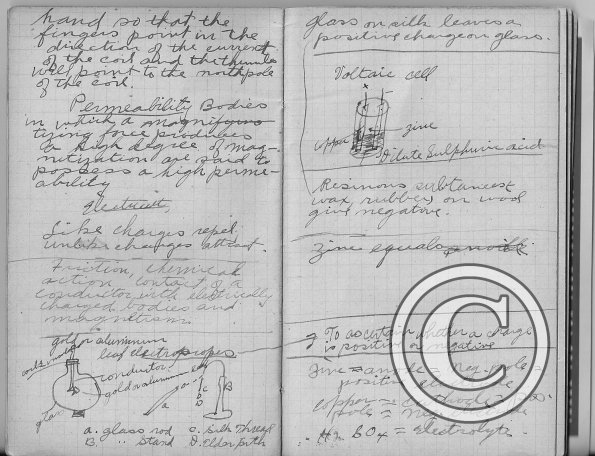 hand so that the
fingers point in the
direction of the current
of the coil and the thumb
will point to the north pole
of the coil.
Permeability Bodies
in which a magnifying
tizing force produces
a high degree of mag-
netization are said to
possess a high perme-
ability
Electricity
Like charges repel
unlike charges attract.
Friction, chemical
action, contact of a
conductor with electrically
charged bodies and
magnetism.
gold or aluminum
leaf electroscopes
conductor
gold or aluminum
glass
A
B
C
D
A. glass rod C. Silk Thread
B. " Stand D. Elder pith
glass on silk leaves a
positive charge on glass.
Voltaic cell
+ -
copper zinc
Dilute Sulphuric acid
Resinous substances
wax, rubber, on wool
give negative.
Zinc equals
To ascertain whether a charge
is positive or negative
Zinc = anode = neg. pole =
positive
copper = cathode = pos.
pole = negative
H₂SO₄ = electrolyte.
©